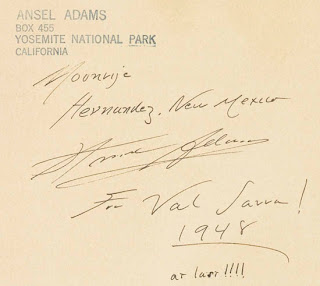 ANSEL ADAMS
BOX 455
YOSEMITE NATIONAL PARK
CALIFORNIA
Moonrise
Hernandez, New Mexico
Ansel Adams
For Val
1948
at last!!!!